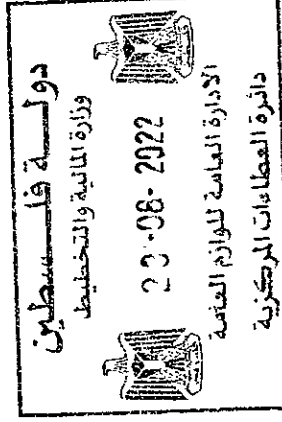 دولة فلسطين
وزارة المالية والتخطيط
-08-2022
الادارة العامة للوازم العامة
دائرة العطاءات المركزية